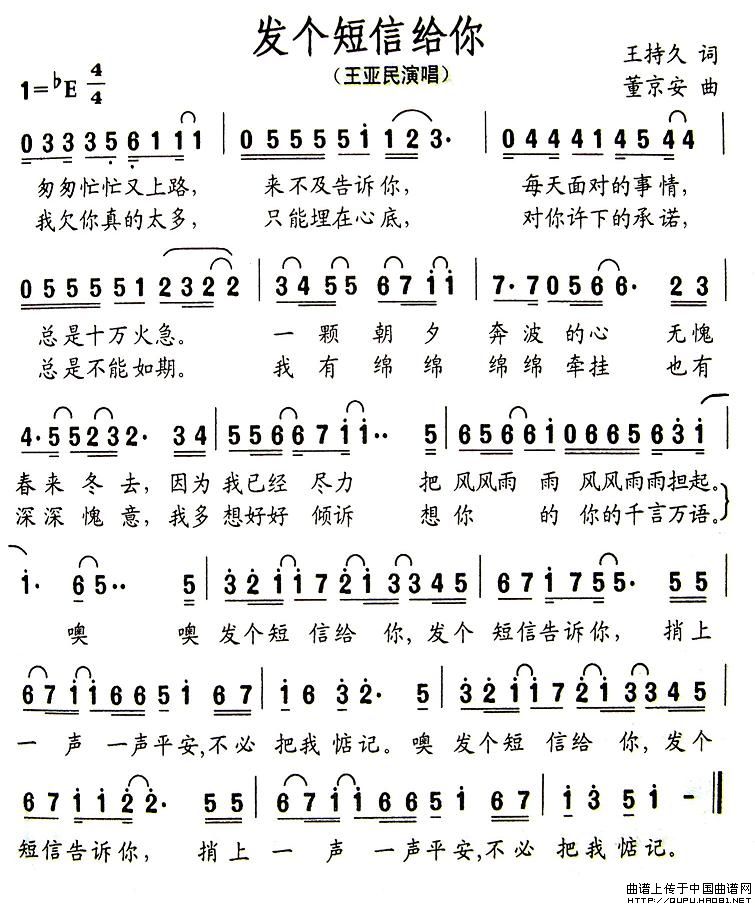 发个短信给你
（王亚民演唱）
王持久 词
1=♭E 4/4
董京安 曲
0 3 3 3 5 6 1 1 1 | 0 5 5 5 5 5 i 1 2 3· | 0 4 4 4 4 1 4 5 4 4 4
匆匆忙忙又上路， 来不及告诉你， 每天面对的事情，
我欠你真的太多， 只能埋在心底， 对你许下的承诺，
0 5 5 5 5 5 1 2 3 2 2 | 3 4 5 5 6 7 i i | 7· 7 0 5 6 6· 2 3
总是十万火急。 一颗朝夕奔波的心 无愧
总是不能如期。 我有绵绵绵绵牵挂 也有
4· 5 5 2 3 2· 3 4 | 5 5 6 6 7 i i·· 5 | 6 5 6 6 i 0 6 6 5 6 3 i
春来冬去，因为我已经尽力 把风风雨雨风风雨雨担起。
深深愧意，我多想好好倾诉 想你的你的千言万语。
i· 6 5·· 5 | 3 2 i i 7 2 i 3 3 4 5 | 6 7 i 7 5 5· 5 5
噢 噢发个短信给你，发个短信告诉你， 捎上
6 7 i i 6 6 5 i 6 7 | i 6 3 2· 5 | 3 2 i i 7 2 i 3 3 4 5
一声一声平安，不必把我惦记。噢发个短信给你，发个
6 7 i i 2 2· 5 5 | 6 7 i i 6 6 5 i 6 7 | i 3 5 i i -
短信告诉你， 捎上一声一声平安，不必把我惦记。
曲谱上传于中国曲谱网
HTTP://QUPU.HAO81.NET